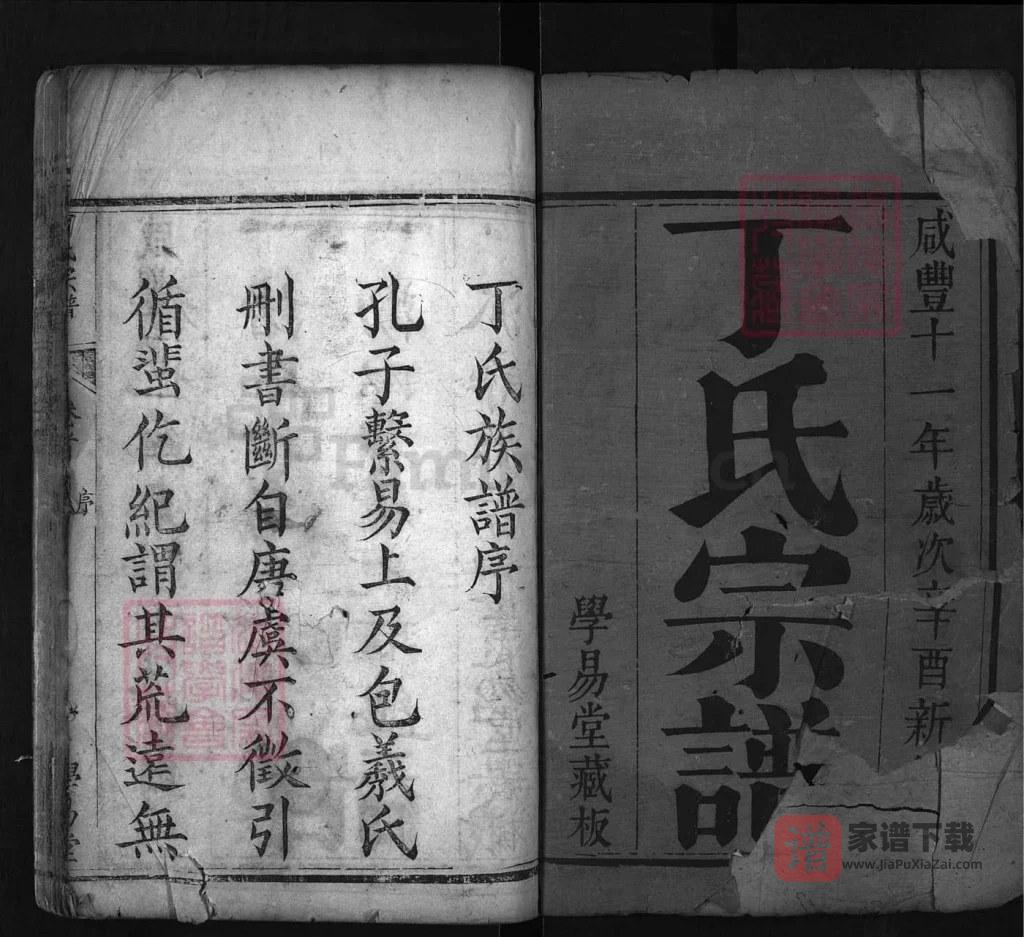 咸豐十一年歲次辛酉新
丁氏宗譜
學易堂藏板
丁氏族譜序
孔子繫易上及包羲氏
刪書斷自唐虞不徵引
循蜚仡紀謂其荒遠無
序
家谱下载
www.JiaPuXiaZai.com
谱